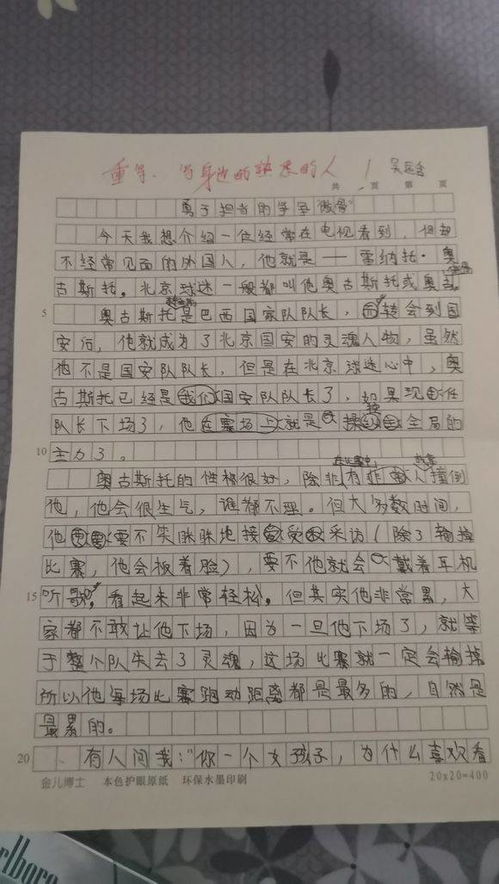 重写、写身边的熟悉的人！
共 页 第 页
勇于担当的学哥傲骨
今天我想介绍一位经常在电视看到，但却
不经常见面的外国人，他就是——雷纳托·奥
古斯托。北京球迷一般都叫他奥古斯托或奥古
5 奥古斯托是巴西国家队队长，转会到国
安后，他就成为了北京国安的灵魂人物，虽然
他不是国安队队长，但是在北京球迷心中，奥
古斯托已经是我们国安队队长了，如果现任
队长下场了，他在赛场上就是操控全局的
10 主力了。
奥古斯托的性格很好，除非有人撞倒
他，他会很生气，谁都不理。但大多数时间，
他要不失眯眯地接受采访（除了输掉
比赛，他会板着脸），要不他就会戴着耳机
15 听歌，看起来非常轻松。但其实他非常累，大
家都不敢让他下场，因为一旦他下场了，就等
于整个队失去了灵魂，这场比赛就一定会输掉
所以他每场比赛跑动距离都是最多的，自然是
最累的。
20 有人问我：“你一个女孩子，为什么喜欢看
金儿博士 本色护眼原纸 环保水墨印刷 20×20=400
rlboro